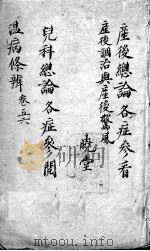 產後總論各症參看
產後調治與產後驚風
曉堂
兒科總論各症參閱
溫病條辨 卷五六